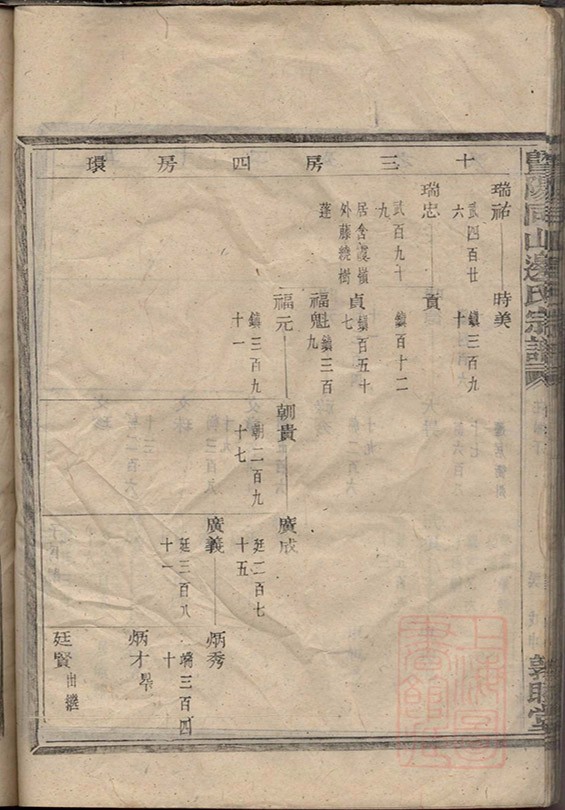 暨陽同山邊氏宗譜
義聚堂
十三房 四房 環
瑞祐
武四百廿六
時美
鎮三百九十
瑞忠
武百九十九
居含溪嶺外藤繞樹蓬
貢
鎮百十二
貞
鎮百五十七
福魁
鎮三百九
福元
鎮三百九十一
朝貴
朝二百九十七
廣成
廷二百七十五
廣義
廷三百八十一
炳秀
端三百四十
炳才
昂
廷賢
出繼